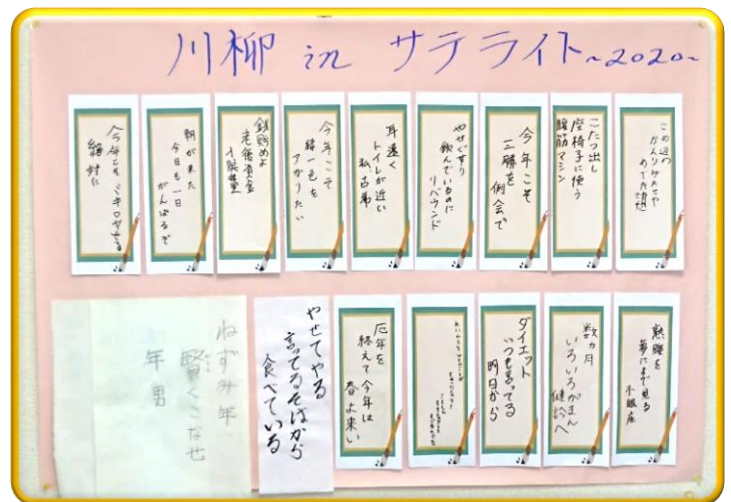 川柳 in サテライト~2020~
こたつ出し
座椅子に使う
腹筋マシン
今年こそ
三勝を
例会で
やせぐすり
飲んでいるのに
リバウンド
耳遠く
トイレが近い
私、古希
今年こそ
緑一色を
アガりたい
銭貯めよ
老後資金
朝が来た
今日も一日
がんばるぞ
今年こそ
絶対に
熟睡を
夢にまで見る
不眠症
数ヵ月
いろいろがまん
健診へ
ダイエット
いつも言ってる
明日から
厄年を
終えて今年は
春よ来い
やせてやる
言ってるそばから
食べている
ねずみ年
賢くこなせ
年男